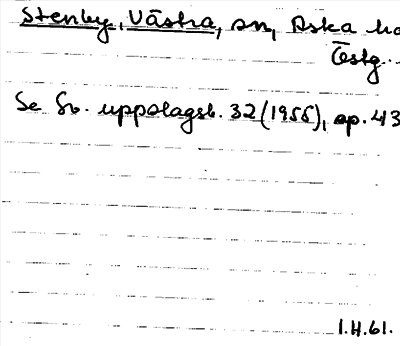 Stenby, Västra, sn, Aska ha
Östg.
Se Sv. uppslagsb. 32 (1955), sp. 43
I.H.61.